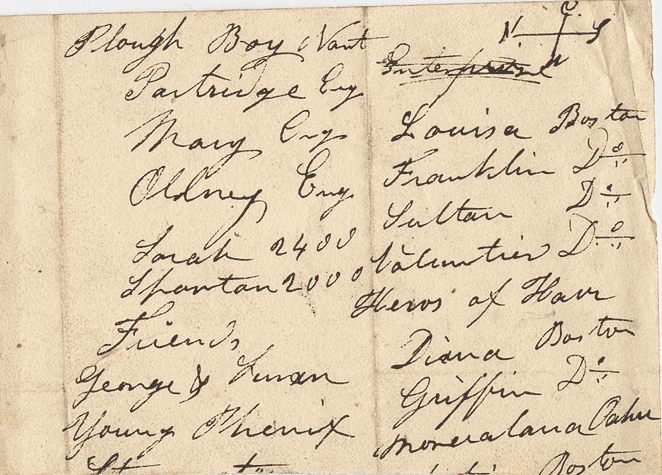 Plough Boy Nant
Partridge Eng
Mary Eng
Oldney Eng
Sarah 2400
Spartan 2000
Friends
George & Susan
Young Phenix
N S
Enterprise
Louisa Boston
Franklin Do
Sultan Do
Valuntier Do
Heros of Havr
Diana Boston
Griffin Do
Oahu
Boston